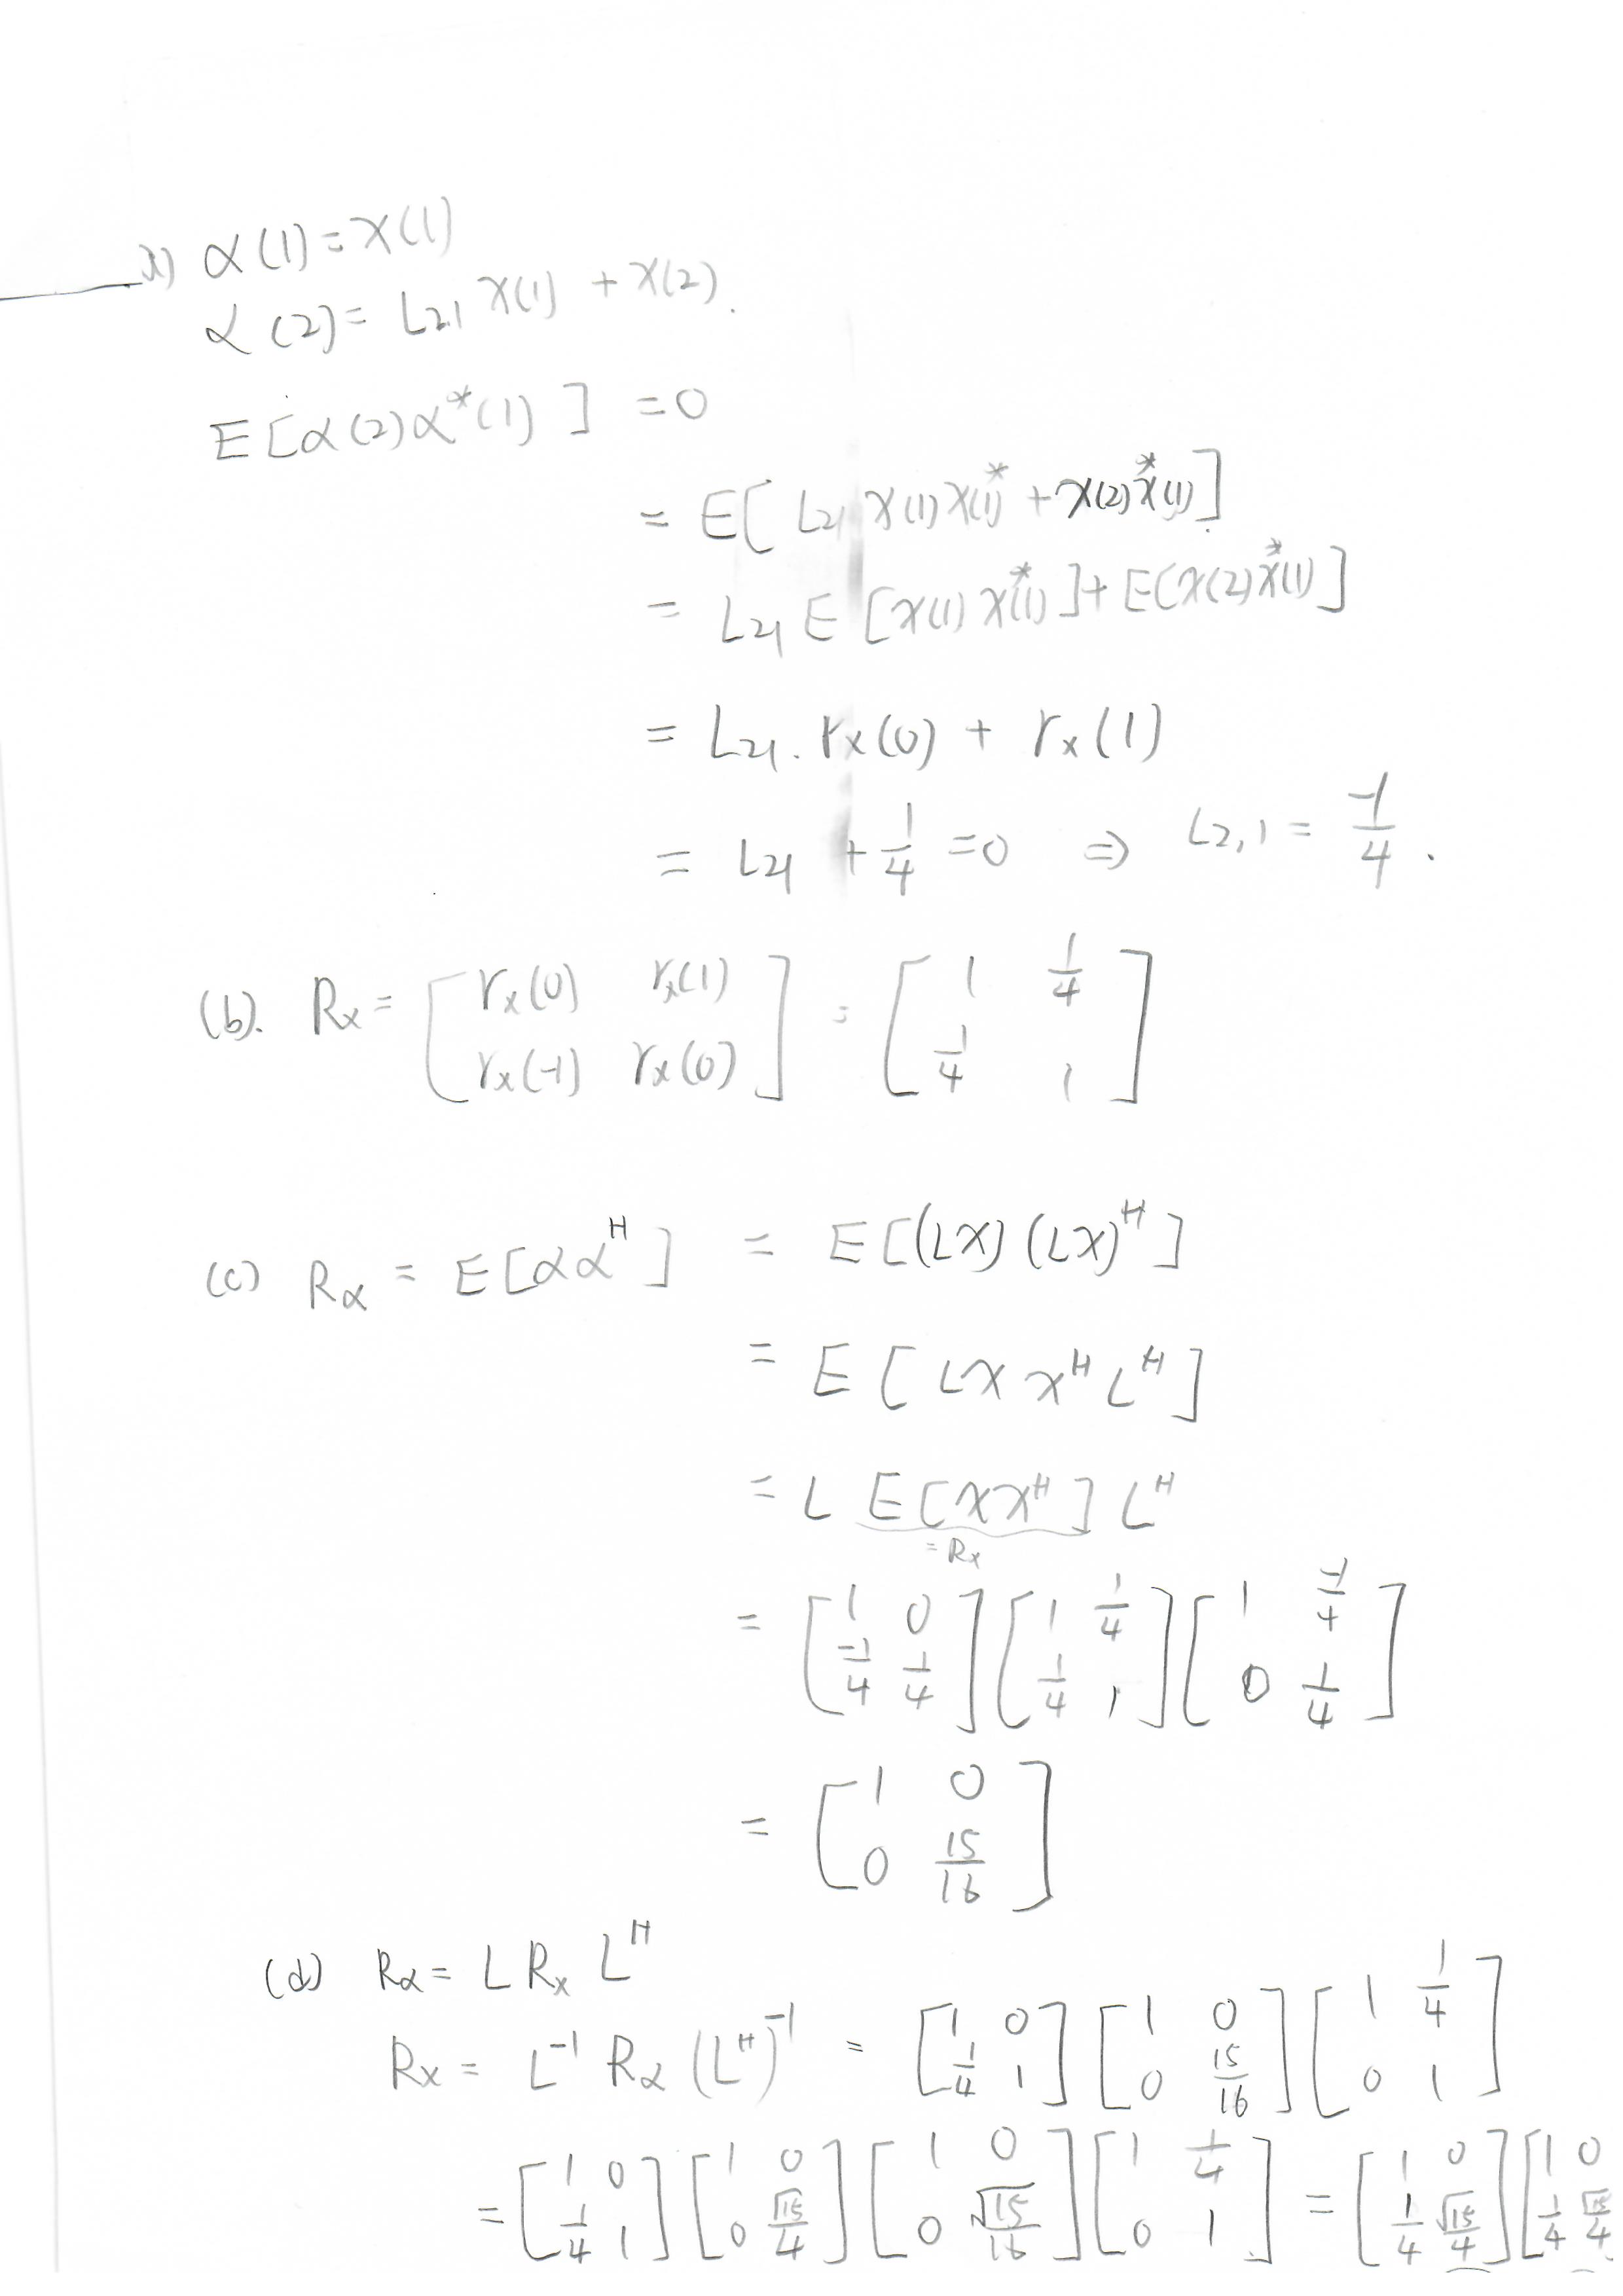 α(1)=x(1)
α(2)= L2,1 x(1) + x(2).
E[α(2)α*(1)] =0
= E[ L21 x(1)x(1)* + x(2)x*(1)]
= L21 E [x(1) x*(1)] + E[x(2)x*(1)]
= L21. rx(0) + rx(1)
= L21 + 1/4 =0 ⇒ L2,1 = -1/4 .
(b). Rx = [rx(0) rx(1) ; rx(-1) rx(0)] = [1 1/4 ; 1/4 1]
(c) Rα = E[αα^H] = E[(LX)(LX)^H]
= E [LX X^H L^H]
= L E[XX^H] L^H
= Rx
= [1 0 ; -1/4 1/4] [1 1/4 ; 1/4 1] [1 -1/4 ; 0 1/4]
= [1 0 ; 0 15/16]
(d) Rα = L Rx L^H
Rx = L^-1 Rα (L^H)^-1 = [1 0 ; 1/4 1] [1 0 ; 0 15/16] [1 1/4 ; 0 1]
= [1 0 ; 1/4 1] [1 0 ; 0 √15/4] [1 0 ; 0 √15/16] [1 1/4 ; 0 1] = [1 0 ; 1/4 √15/4] [1 0 ; 1/4 √15/4